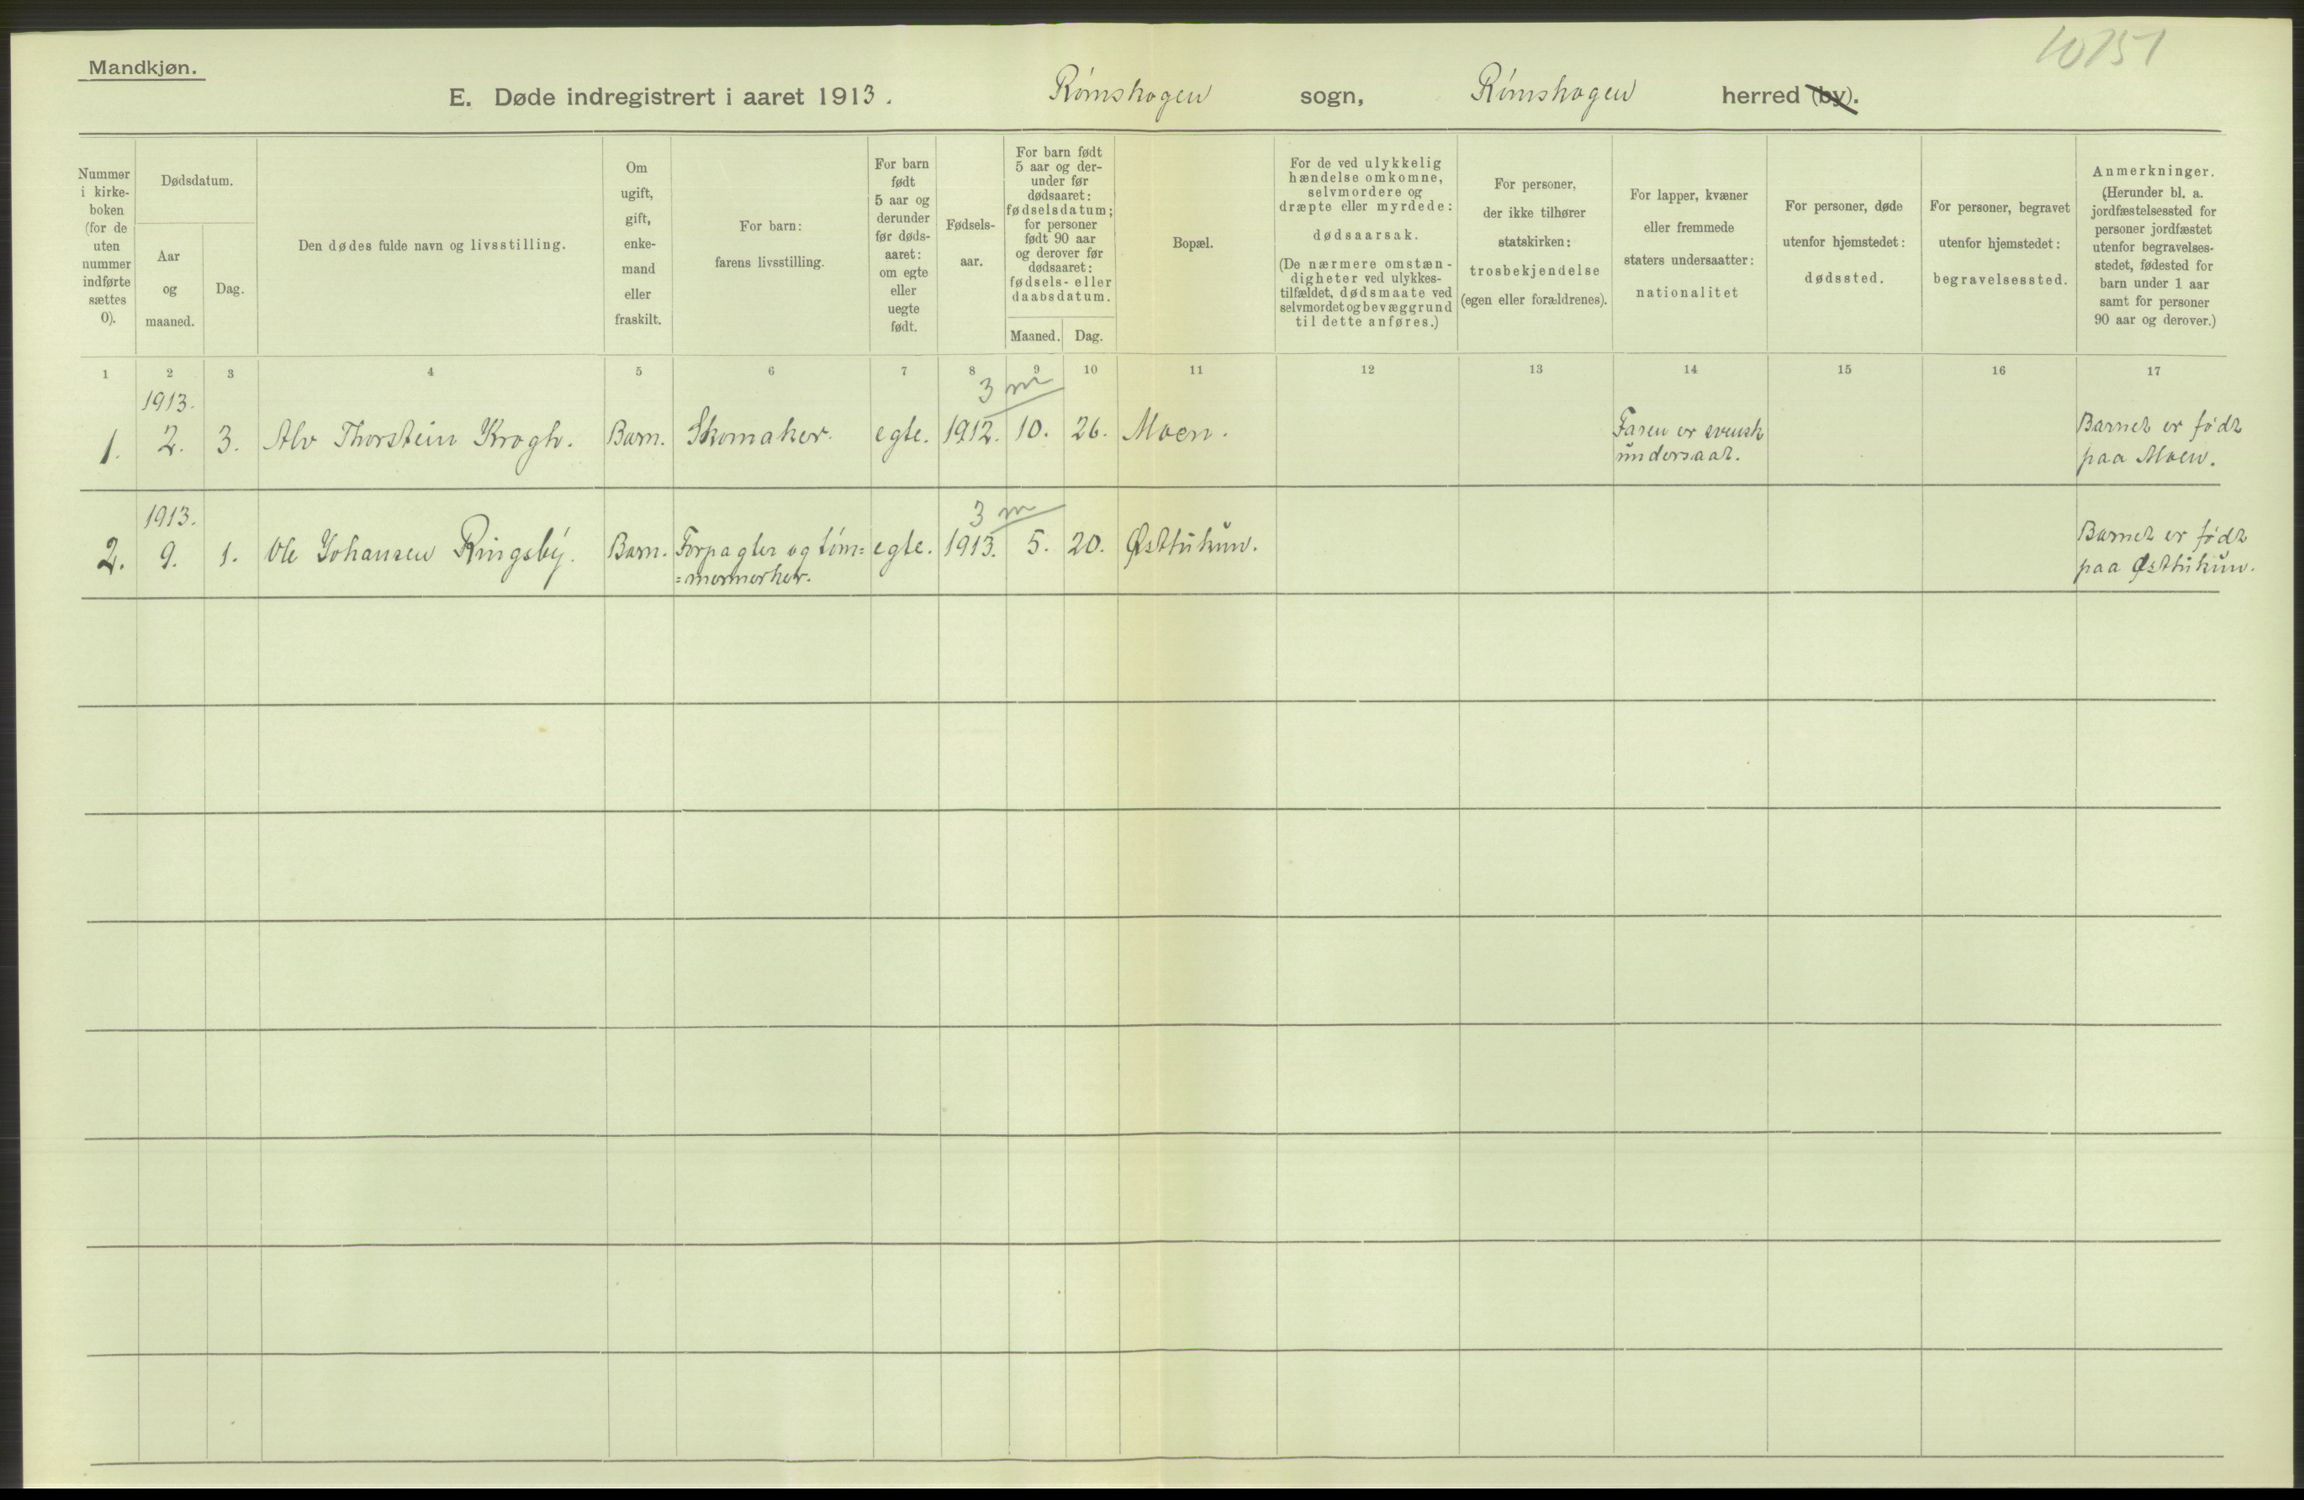 10151
Mandkjøn.
E. Døde indregistrert i aaret 1913. Rømskogen sogn, Rømskogen herred (by).
Nummer i kirke-boken (for de uten nummer indførte sættes 0).
Dødsdatum.
Aar og maaned.
Dag.
Den dødes fulde navn og livsstilling.
Om ugift, gift, enke-mand eller fraskilt.
For barn: farens livsstilling.
For barn født 5 aar og derunder før døds-aaret: om egte eller uegte født.
Fødsels-aar.
For barn født 5 aar og der-under før dødsaaret: fødselsdatum; for personer født 90 aar og derover før dødsaaret: fødsels- eller daabsdatum.
Maaned. Dag.
Bopæl.
For de ved ulykkelig hændelse omkomne, selvmordere og dræpte eller myrdede: dødsaarsak.
(De nærmere omstæn-digheter ved ulykkes-tilfældet, dødsmaate ved selvmordet og bevæggrund til dette anføres.)
For personer, der ikke tilhører statskirken: trosbekjendelse (egen eller forældrenes).
For lapper, kvæner eller fremmede staters undersaatter: nationalitet
For personer, døde utenfor hjemstedet: dødssted.
For personer, begravet utenfor hjemstedet: begravelsessted.
Anmerkninger. (Herunder bl. a. jordfæstelsessted for personer jordfæstet utenfor begravelses-stedet, fødested for barn under 1 aar samt for personer 90 aar og derover.)
1 2 3 4 5 6 7 8 9 10 11 12 13 14 15 16 17
1913. 3 m
1. 2. 3. Alv Thorstein Krogh. Barn. Skomaker. egte. 1912. 10. 26. Moen. Faren er svensk Barnet er født
undersaat. paa Moen.
1913. 3 m
2. 9. 1. Ole Johansen Ringsby. Barn. Forpagter og tøm= egte. 1913. 5. 20. Østtukun. Barnet er født
=mermerker. paa Østtukun.